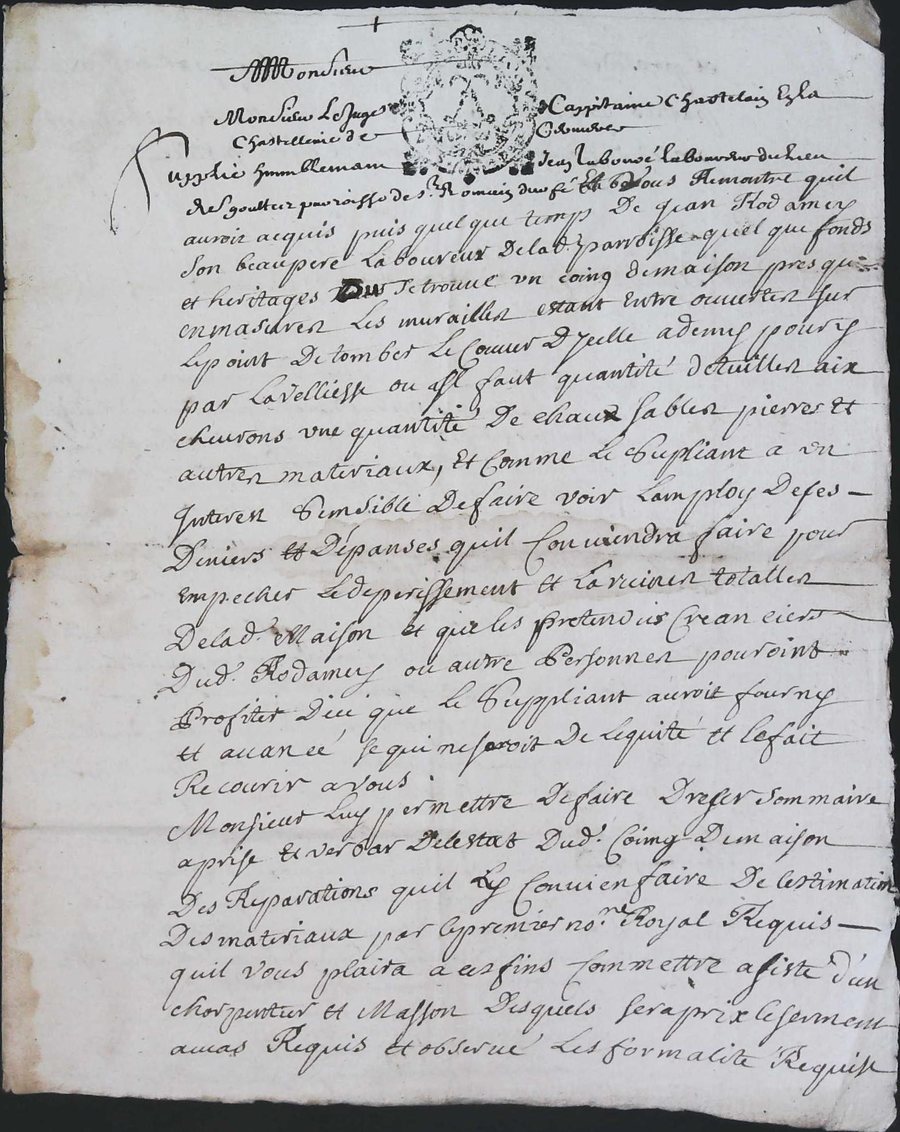 Monsieur
Monsieur Le Juge Cappitaine Chastelain En la
Chastellenie de
Supplie humblemant Jean laboureur du lieu
paroisse de st Romain Remontre quil
auroit acquis puis quelque temps De Jean Rodamey
Son beaupere Laboureur Delad. parroisse quelque fonds
et heritages Se trouve un coing demaison presque
enmasures Les murailles estant Entre ouvertes Sur
Lepoint De tomber Le Couver D'Jcelle ademy poury
par LaVelliesse ou Jl faut quantité detuilles aix
chevrons une quantité De chaux Sables pierres Et
autres materiaux, Et Comme Le Supliant a un
Jnteres Sensible Defaire voir Lamploy Defes
Deniers Et Dépanses quil Conviendra faire pour
empecher Ledeperissement Et La ruines totalles
Delad. Maison et queles pretendus Creanciers
Dud. Rodamey ou autre Personnes pouroint
Profiter De ce que Le Suppliant auroit fourny
et avancé se qui neseroit De Lequité Et Lefait
Recourir a vous
Monsieur Luy permettre Defaire Dreser Sommaire
aprise Et verbar Delestat Dud. Coing Demaison
Des Reparations quil Ly Convien faire De lestimation
Desmateriaux par lepremier no.re Royal Requis
quil vous plaira a ces fins Commettre assiste d'un
charpentier et Masson Desquels sera prix le serment
aucas Requis et observé Les formalité Requise